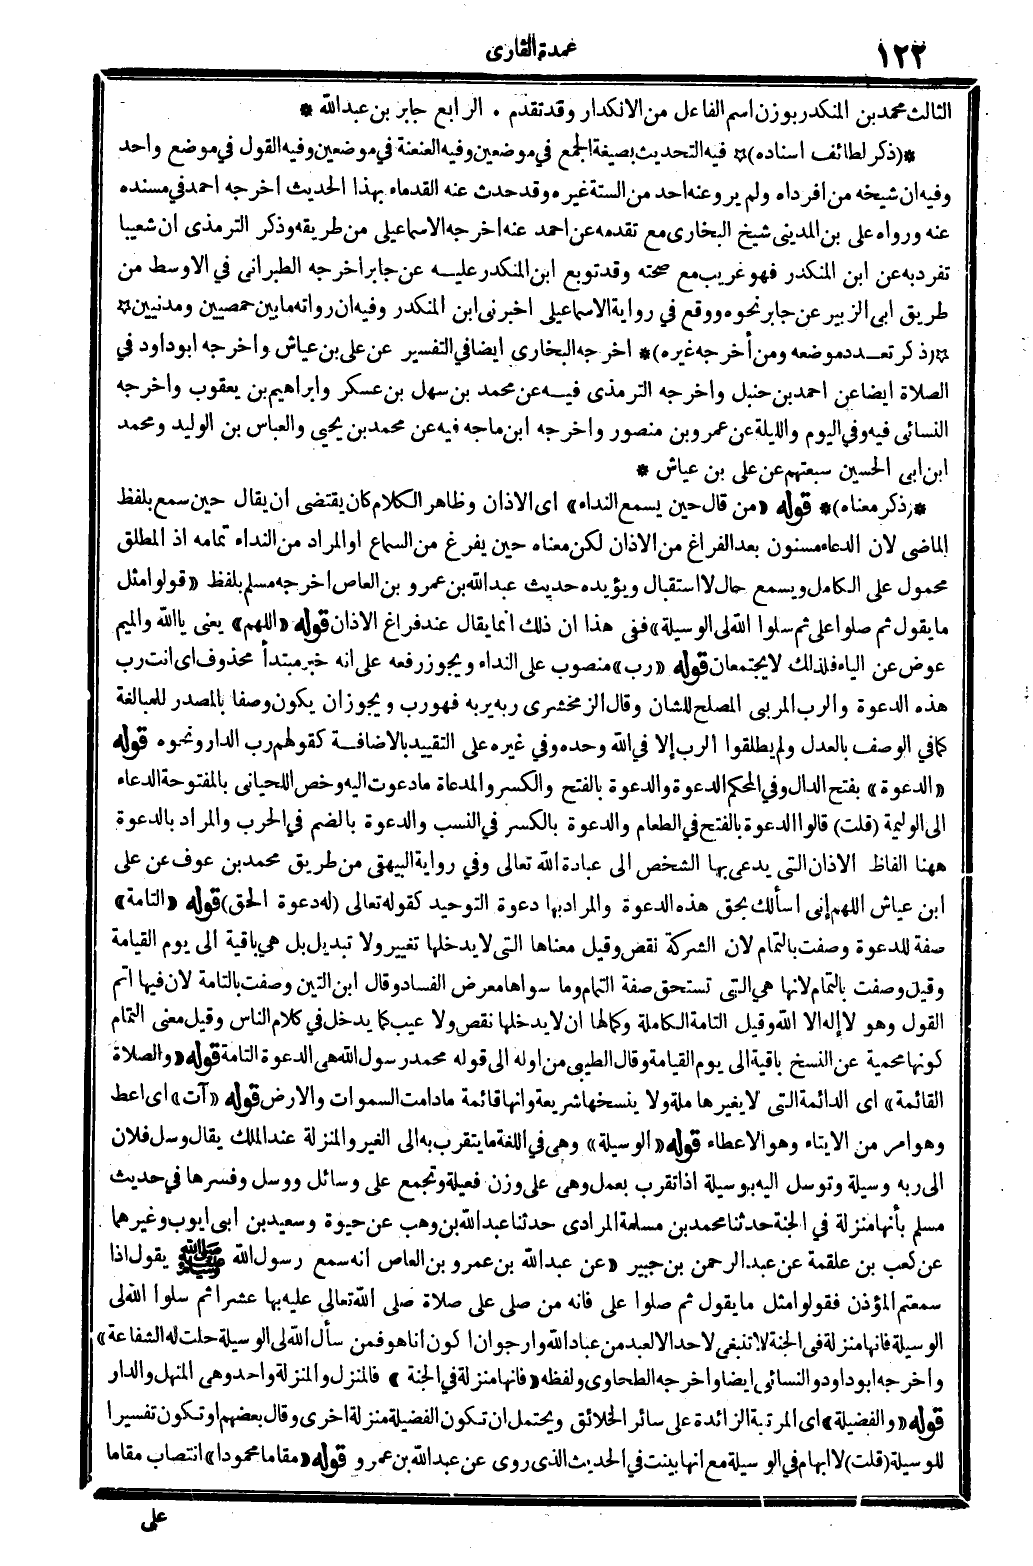 ١٢٢
عمدة القارى
الثالث محمد بن المنكدر بوزن اسم الفاعل من الانكدار وقد تقدم . الرابع جابر بن عبدالله *
*(ذكر لطائف اسناده)* فيه التحديث بصيغة الجمع في موضعين وفيه العنعنة في موضعين وفيه القول في موضع واحد
وفيه ان شيخه من افراده ولم يرو عنه احد من الستة غيره وقد حدث عنه القدماء بهذا الحديث اخرجه احمد في مسنده
عنه ورواه على بن المدينى شيخ البخارى مع تقدمه عن احمد عنه اخرجه الاسماعيلى من طريقه وذكر الترمذى ان شعيبا
تفرد به عن ابن المنكدر فهو غريب مع صحته وقد توبع ابن المنكدر عليه عن جابر اخرجه الطبرانى في الاوسط من
طريق ابى الزبير عن جابر نحوه ووقع في رواية الاسماعيلى اخبرنى ابن المنكدر وفيه ان رواته ما بين حمصيين ومدنيين *
*(ذكر تعدد موضعه ومن أخرجه غيره)* اخرجه البخارى ايضا في التفسير عن على بن عياش واخرجه ابو داود في
الصلاة ايضا عن احمد بن حنبل واخرجه الترمذى فيه عن محمد بن سهل بن عسكر وابراهيم بن يعقوب واخرجه
النسائى فيه وفي اليوم والليلة عن عمرو بن منصور واخرجه ابن ماجه فيه عن محمد بن يحيى والعباس بن الوليد ومحمد
ابن ابى الحسين سبعتهم عن على بن عياش *
*(ذكر معناه)* قوله «من قال حين يسمع النداء» اى الاذان وظاهر الكلام كان يقتضى ان يقال حين سمع بلفظ
الماضى لان الدعاء مسنون بعد الفراغ من الاذان لكن معناه حين يفرغ من السماع او المراد من النداء تمامه اذ المطلق
محمول على الكامل ويسمع حال لا استقبال ويؤيده حديث عبدالله بن عمرو بن العاص اخرجه مسلم بلفظ «قولوا مثل
ما يقول ثم صلوا على ثم سلوا الله لى الوسيلة» ففى هذا ان ذلك انما يقال عند فراغ الاذان قوله «اللهم» يعنى يا الله والميم
عوض عن الياء فلذلك لا يجتمعان قوله «رب» منصوب على النداء ويجوز رفعه على انه خبر مبتدأ محذوف اى انت رب
هذه الدعوة والرب المربى المصلح للشان وقال الزمخشرى ربه يربه فهو رب ويجوز ان يكون وصفا بالمصدر للمبالغة
كما في الوصف بالعدل ولم يطلقوا الرب إلا في الله وحده وفي غيره على التقييد بالاضافة كقولهم رب الدار ونحوه قوله
«الدعوة» بفتح الدال وفي المحكم الدعوة والدعوة بالفتح والكسر والمدعاة ما دعوت اليه وخص اللحيانى بالمفتوحة الدعاء
الى الوليمة (قلت) قالوا الدعوة بالفتح في الطعام والدعوة بالكسر في النسب والدعوة بالضم في الحرب والمراد بالدعوة
ههنا الفاظ الاذان التى يدعى بها الشخص الى عبادة الله تعالى وفي رواية البيهقى من طريق محمد بن عوف عن على
ابن عياش اللهم إنى اسألك بحق هذه الدعوة والمراد بها دعوة التوحيد كقوله تعالى (له دعوة الحق) قوله «التامة»
صفة للدعوة وصفت بالتمام لان الشركة نقص وقيل معناها التى لا يدخلها تغيير ولا تبديل بل هي باقية الى يوم القيامة
وقيل وصفت بالتمام لانها هي التى تستحق صفة التمام وما سواها معرض الفساد وقال ابن التين وصفت بالتامة لان فيها اتم
القول وهو لا إله الا الله وقيل التامة الكاملة وكمالها ان لا يدخلها نقص ولا عيب كما يدخل في كلام الناس وقيل معنى التمام
كونها محمية عن النسخ باقية الى يوم القيامة وقال الطيبى من اوله الى قوله محمد رسول الله هى الدعوة التامة قوله «والصلاة
القائمة» اى الدائمة التى لا يغيرها ملة ولا ينسخها شريعة وانها قائمة ما دامت السموات والارض قوله «آت» اى اعط
وهو امر من الايتاء وهو الاعطاء قوله «الوسيلة» وهى في اللغة ما يتقرب به الى الغير والمنزلة عند الملك يقال وسل فلان
الى ربه وسيلة وتوسل اليه بوسيلة اذا تقرب بعمل وهى على وزن فعيلة وتجمع على وسائل ووسل وفسرها في حديث
مسلم بأنها منزلة في الجنة حدثنا محمد بن مسلمة المرادى حدثنا عبدالله بن وهب عن حيوة وسعيد بن ابى ايوب وغيرهما
عن كعب بن علقمة عن عبد الرحمن بن جبير «عن عبدالله بن عمرو بن العاص انه سمع رسول الله ﷺ يقول اذا
سمعتم المؤذن فقولوا مثل ما يقول ثم صلوا على فانه من صلى على صلاة صلى الله تعالى عليه بها عشرا ثم سلوا الله لى
الوسيلة فانها منزلة فى الجنة لا تنبغى لاحد الا لعبد من عباد الله وارجو ان اكون انا هو فمن سأل الله لى الوسيلة حلت له الشفاعة»
واخرجه ابو داود والنسائى ايضا واخرجه الطحاوى ولفظه «فانها منزلة في الجنة» فالمنزل والمنزلة واحد وهى المنهل والدار
قوله «والفضيلة» اى المرتبة الزائدة على سائر الخلائق ويحتمل ان تكون الفضيلة منزلة اخرى وقال بعضهم او تكون تفسيرا
للوسيلة (قلت) لا ابهام في الوسيلة مع انها بينت في الحديث الذى روى عن عبدالله بن عمرو قوله «مقاما محمودا» انتصاب مقاما
على